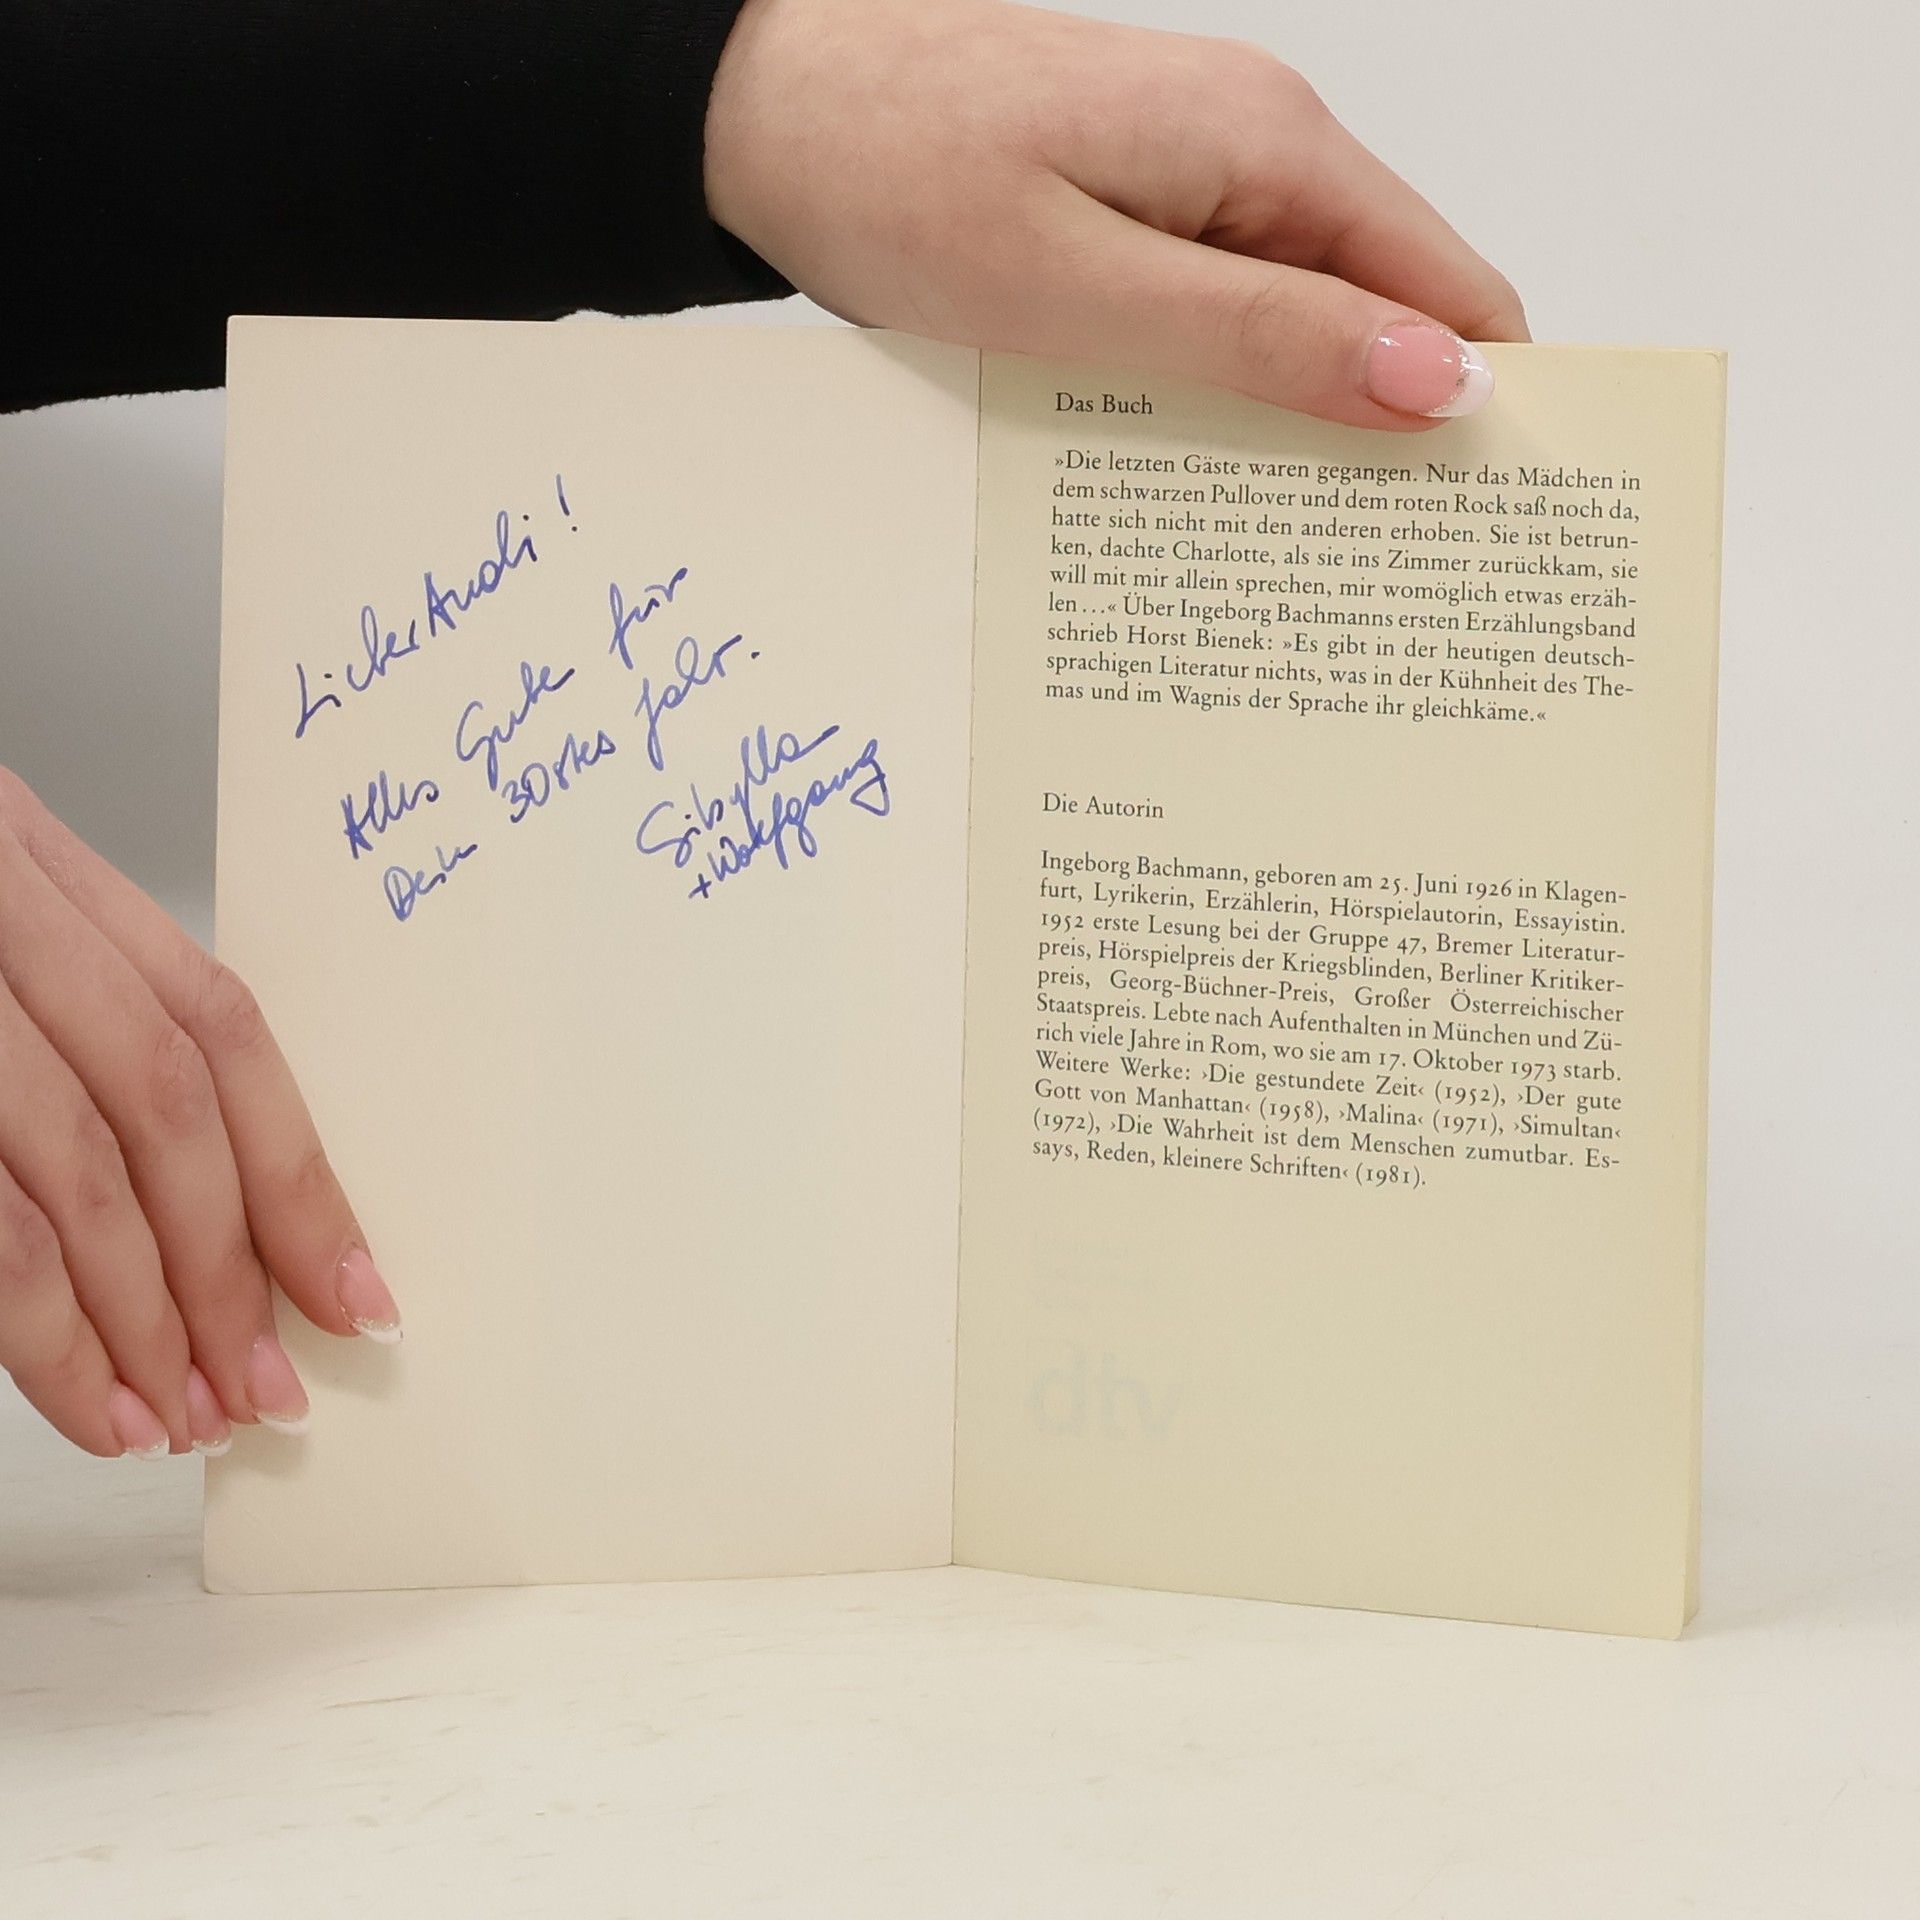 Lieber Andi!
Alles Gute für
Dein 30stes Jahr.
Sibylla
+ Wolfgang
Das Buch
»Die letzten Gäste waren gegangen. Nur das Mädchen in
dem schwarzen Pullover und dem roten Rock saß noch da,
hatte sich nicht mit den anderen erhoben. Sie ist betrun-
ken, dachte Charlotte, als sie ins Zimmer zurückkam, sie
will mit mir allein sprechen, mir womöglich etwas erzäh-
len...« Über Ingeborg Bachmanns ersten Erzählungsband
schrieb Horst Bienek: »Es gibt in der heutigen deutsch-
sprachigen Literatur nichts, was in der Kühnheit des The-
mas und im Wagnis der Sprache ihr gleichkäme.«
Die Autorin
Ingeborg Bachmann, geboren am 25. Juni 1926 in Klagen-
furt, Lyrikerin, Erzählerin, Hörspielautorin, Essayistin.
1952 erste Lesung bei der Gruppe 47, Bremer Literatur-
preis, Hörspielpreis der Kriegsblinden, Berliner Kritiker-
preis, Georg-Büchner-Preis, Großer Österreichischer
Staatspreis. Lebte nach Aufenthalten in München und Zü-
rich viele Jahre in Rom, wo sie am 17. Oktober 1973 starb.
Weitere Werke: ›Die gestundete Zeit‹ (1952), ›Der gute
Gott von Manhattan‹ (1958), ›Malina‹ (1971), ›Simultan‹
(1972), ›Die Wahrheit ist dem Menschen zumutbar. Es-
says, Reden, kleinere Schriften‹ (1981).
dtv